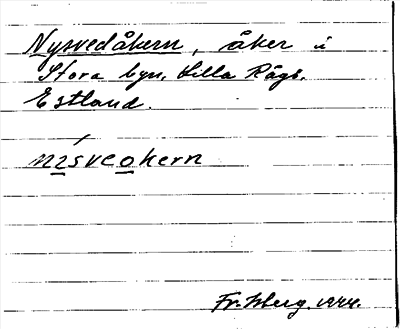 Nysvedåkern, åker i
Stora byn, Lilla Rågö.
Estland.
nisveokern
Fr. Isberg. 1944.